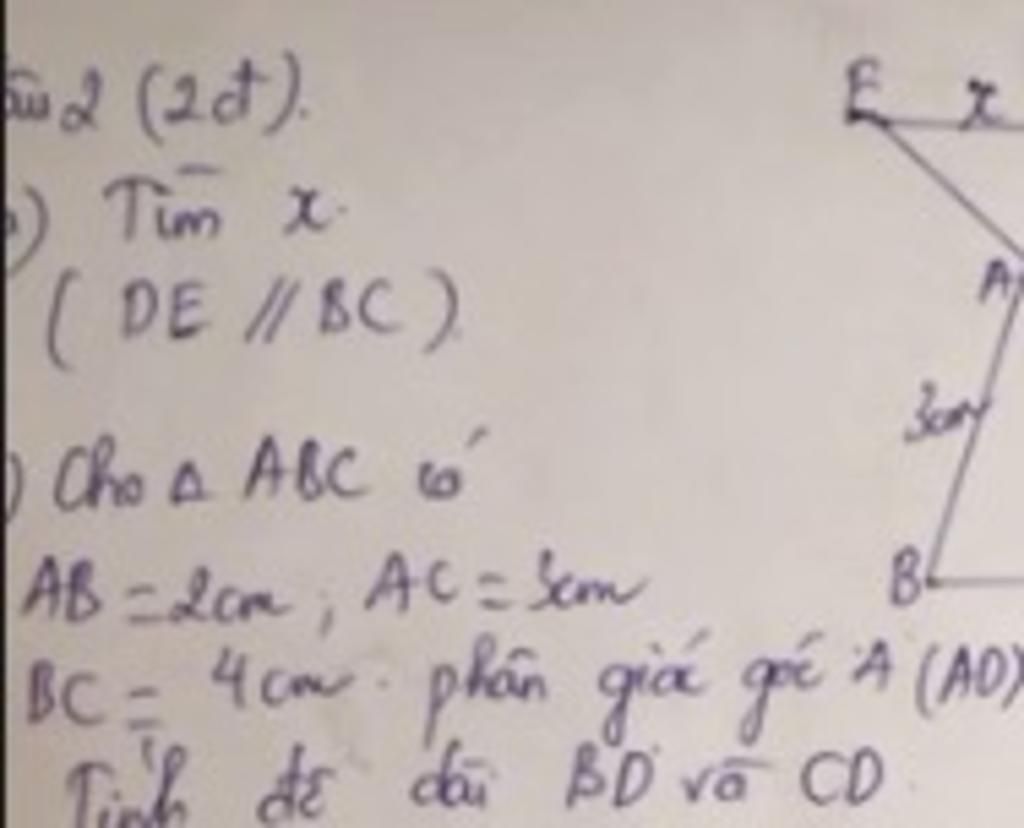 âu 2 (2đ).
E x
) Tìm x.
(DE // BC)
A
3cm
) Cho Δ ABC có
AB = 2cm ; AC = 3cm
B
BC = 4cm. phân giác góc A (AD)
Tính độ dài BD và CD.